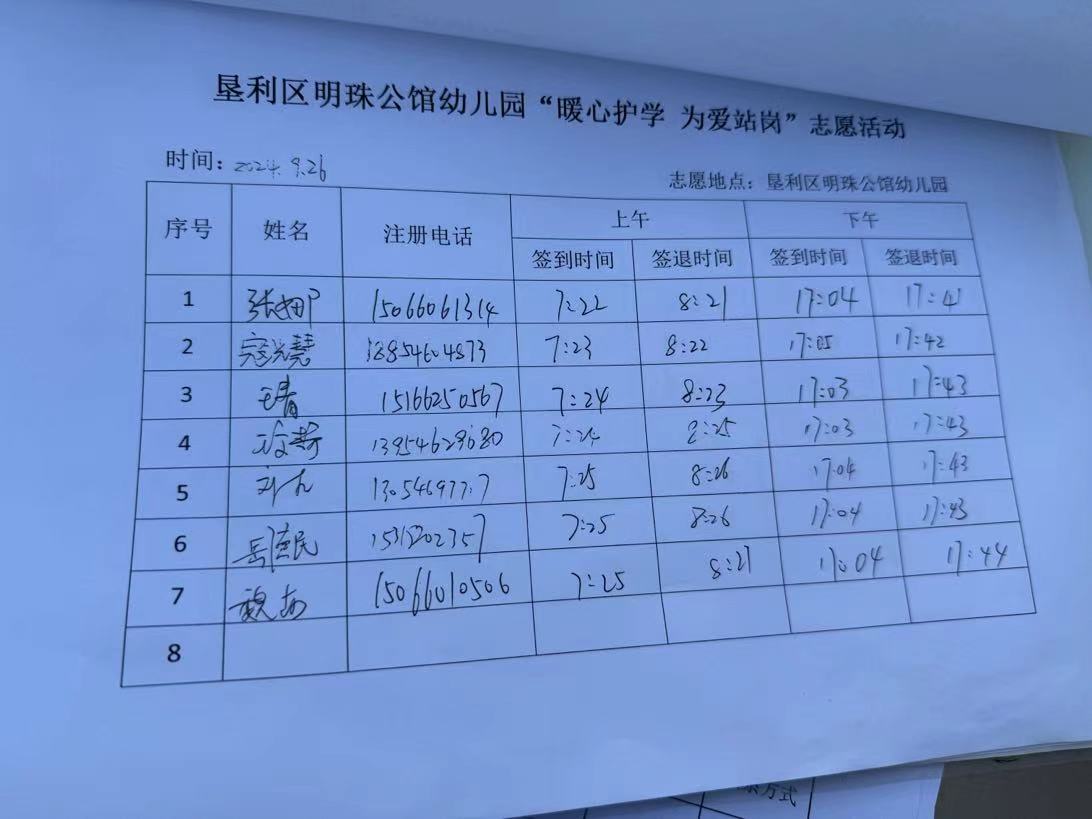 垦利区明珠公馆幼儿园“暖心护学 为爱站岗”志愿活动
时间：2024.9.26
志愿地点：垦利区明珠公馆幼儿园
序号 姓名 注册电话 上午 下午
签到时间 签退时间 签到时间 签退时间
1 张姗 15066061314 7:22 8:21 17:04 17:41
2 寇兴慧 13854604873 7:23 8:22 17:05 17:42
3 王青 15166250567 7:24 8:23 17:03 17:43
4 7:24 8:25 17:03 17:43
5 7:25 8:26 17:04 17:43
6 7:25 8:26 17:04 17:43
7 15066010506 7:25 8:27 17:04 17:44
8
方式